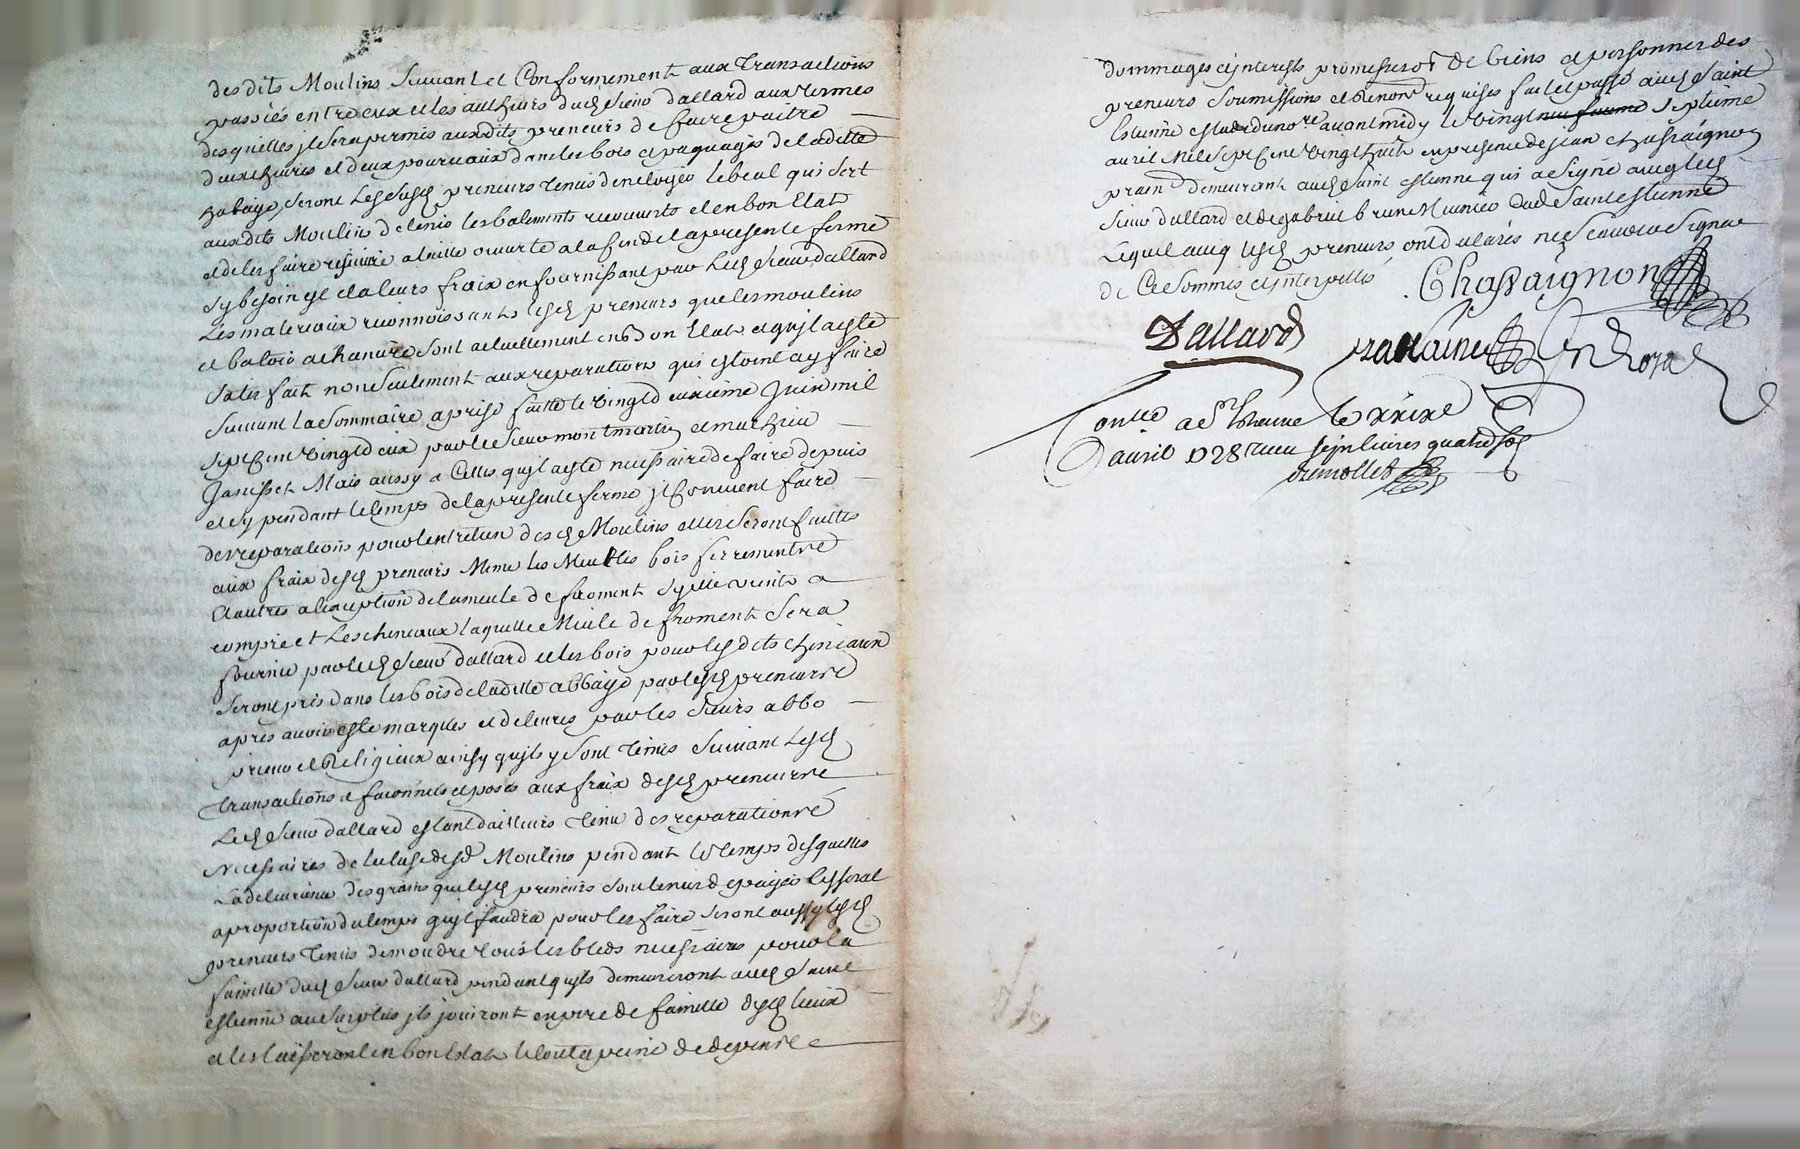 desdits Moulins Suivant et Conformement aux transactions
passées entre eux et les autheurs dud Sieur dallard aux termes
desquelles jl Sera permis auxdits preneurs de faire paitre
deux chevres et deux pourceaux dans les bois et paquages de laditte
abbaye, Seront Lesdsusd preneurs tenus denetoyer le beal qui Sert
auxdits Moulins de tenir les batiments recouverts et en bon Etat
et de les faire a taille ouverte a la fin de la presente ferme
Sy besoin est et a leurs fraix en fournissant par Led Sieur dallard
Les materiaux reconnoissants lesd preneurs que les moulins
et batoir a chanvre sont actuellement en bon Etat et quil a este
Satisfait non seulement aux reparations qui estoint a y faire
Suivant la Sommaire aprise faitte le vingt deuxieme Juin mil
Sept Cent vingt deux par le Sieur montmartin et mathieu
Janisset Mais aussy a Celles quil a este necessaire de faire depuis
et sy pendant le temps de la presente ferme jl Convient faire
des reparations pour lentretien desd Moulins elles Seront faittes
aux fraix desd preneurs Meme les Meubles bois ferremente
et autres a lexception de la meule de froment Sy elle vient a
rompre et Les cheneaux laquelle Meule de froment Sera
fournie par led Sieur dallard et les bois pour lesdits cheneaux
Seront pris dans les bois de laditte abbaye par lesd preneurs
apres avoir este marques et delivres par les Sieurs abbe
prieur et Religieux ainsy quils y Sont tenus Suivant Lesd
transactions et faconnes et poses aux fraix desd preneurs
Led Sieur dallard estant dailleurs tenu des reparations
necessaires de lecluse desd Moulins pendant le temps desquelles
La delivrance des grains que lesd preneurs Sont tenus de payer cessera
a proportion du temps quil faudra pour les faire Seront aussy lesd
preneurs tenus de moudre tous les bleds necessaires pour la
famille dud Sieur dallard pendant quils demeureront aud Saint
estienne au Surplus jls jouiront en pere de famille desd lieux
et les laisseront en bon Etat le tout a peine de depense
dommages et interests promis de biens et personnes des
preneurs Soumissions et Renon requises fait et passé aud Saint
Estienne estude du nore avant midy le vingt septieme
avril Mil Sept Cent vingt huit en presence de jean Chassaignon
prain demeurant aud Saint estienne qui a Signé avec led
Sieur dallard et de gabriel brun Munier dud Saint estienne
Lequel avec lesd preneurs ont déclarés ne Scavoir Signer
de Ce Sommes et interpellés Chassaignon
Dallard
Contlle a St Etienne le XXIXe
avril 1728 receu sept livres quatre sols